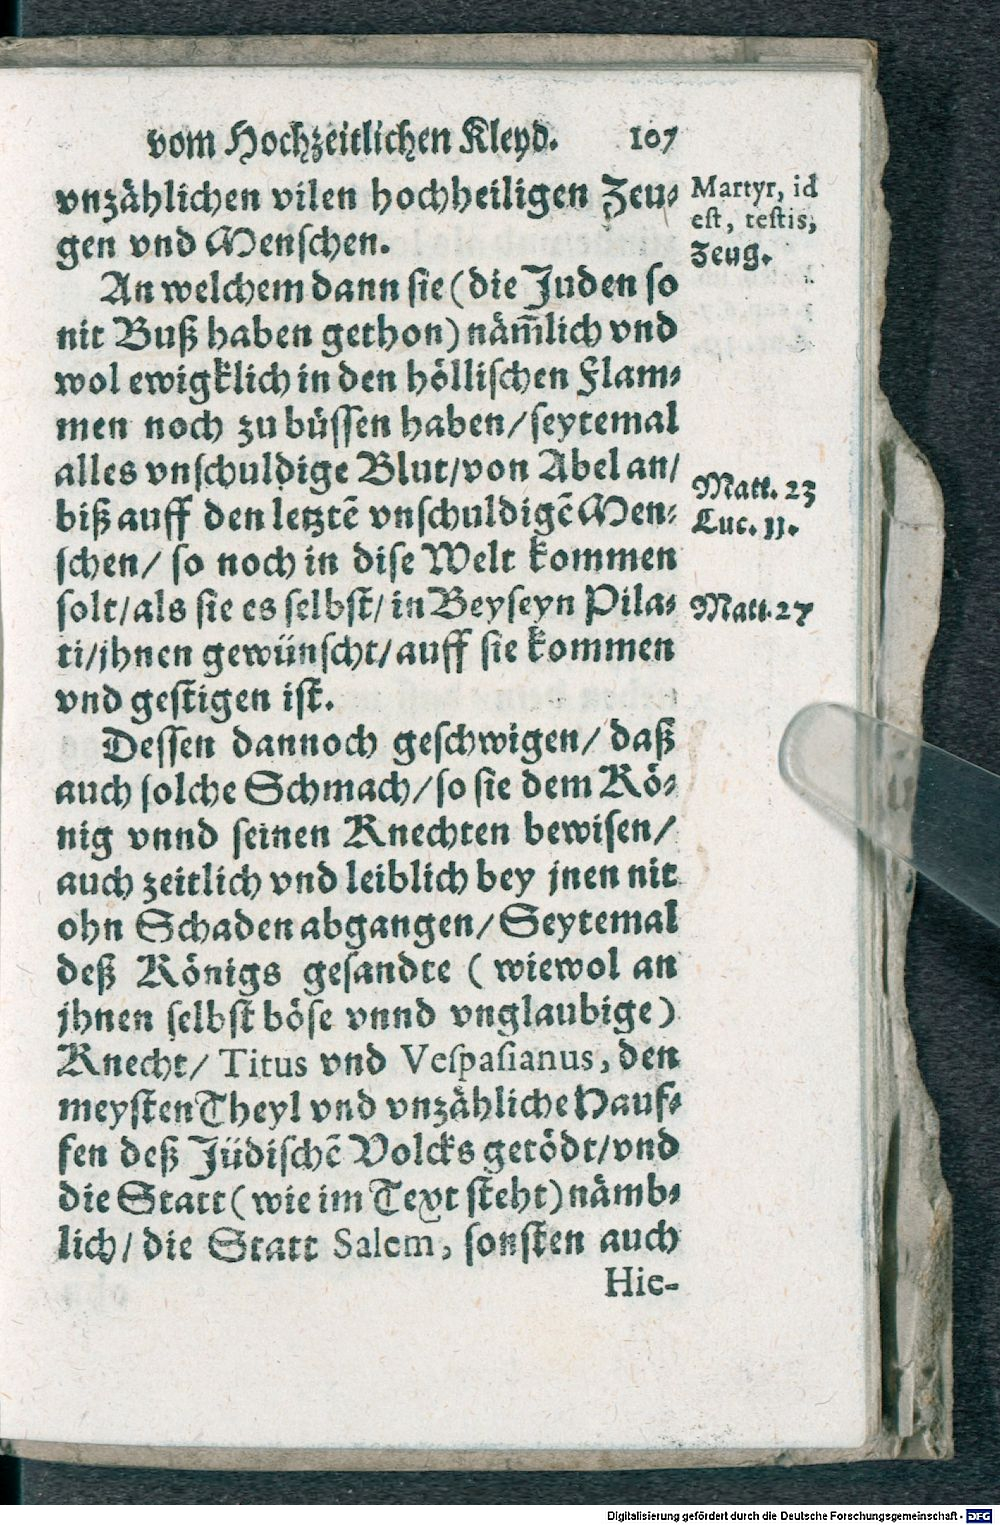 vom Hochzeitlichen Kleyd. 107
vnzählichen vilen hochheiligen Zeu⸗
gen vnd Menschen.
Martyr, id
est, testis,
Zeug.
An welchem dann sie (die Juden so
nit Buß haben gethon) näm̃lich vnd
wol ewigklich in den höllischen Flam⸗
men noch zu büssen haben/ seytemal
alles vnschuldige Blut/ von Abel an/
biß auff den letztẽ vnschuldigẽ Men⸗
schen/ so noch in dise Welt kommen
solt/ als sie es selbst/ in Beyseyn Pila⸗
ti/ jhnen gewünscht/ auff sie kommen
vnd gestigen ist.
Matt. 23
Luc. 11.
Matt. 27
Dessen dannoch geschwigen/ daß
auch solche Schmach/ so sie dem Kö⸗
nig vnnd seinen Knechten bewisen/
auch zeitlich vnd leiblich bey jnen nit
ohn Schaden abgangen/ Seytemal
deß Königs gesandte ( wiewol an
jhnen selbst böse vnnd vnglaubige)
Knecht/ Titus vnd Vespasianus, den
meysten Theyl vnd vnzähliche Hauf⸗
fen deß Jüdischẽ Volcks getödt/ vnd
die Statt (wie im Text steht) nämb⸗
lich/ die Statt Salem, sonsten auch
Hie-
Digitalisierung gefördert durch die Deutsche Forschungsgemeinschaft - DFG